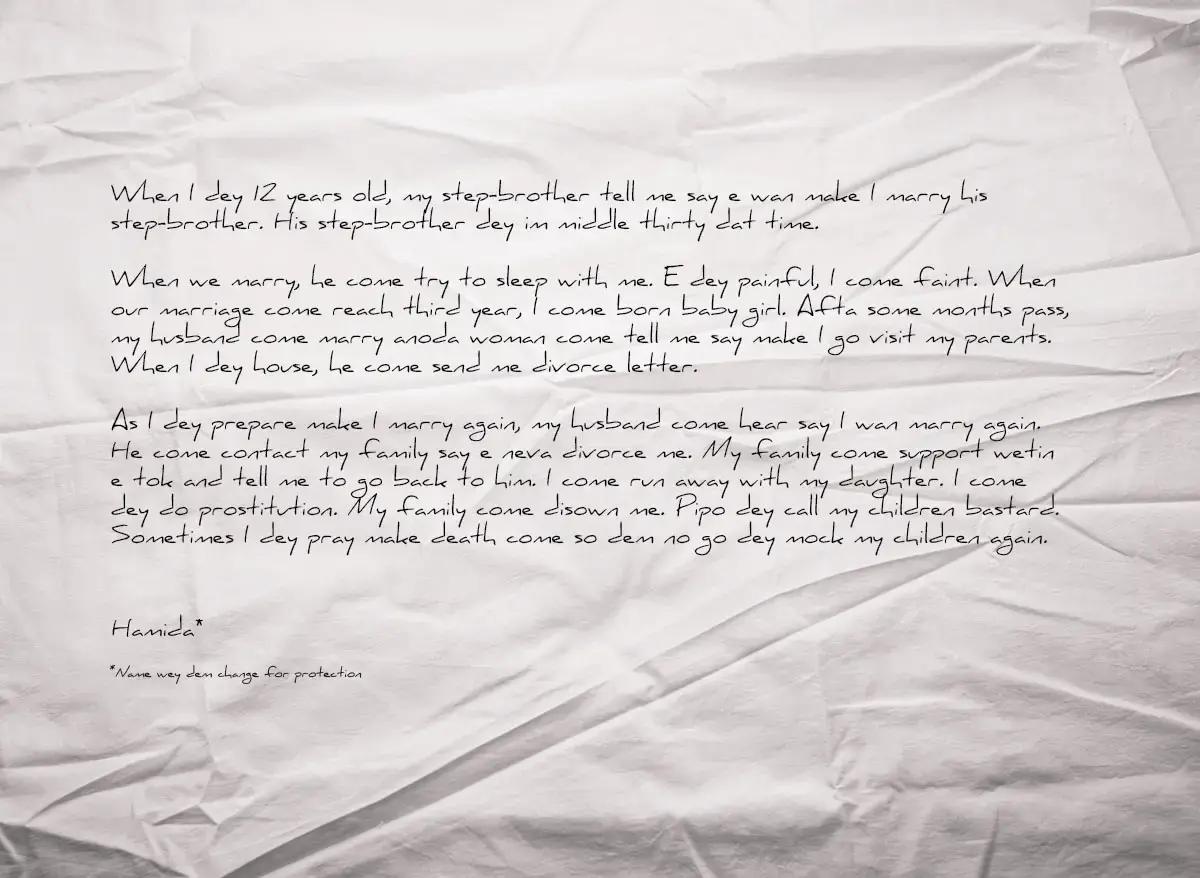 When I dey 12 years old, my step-brother tell me say e wan make I marry his
step-brother. His step-brother dey im middle thirty dat time.
When we marry, he come try to sleep with me. E dey painful, I come faint. When
our marriage come reach third year, I come born baby girl. Afta some months pass,
my husband come marry anoda woman come tell me say make I go visit my parents.
When I dey house, he come send me divorce letter.
As I dey prepare make I marry again, my husband come hear say I wan marry again.
He come contact my family say e neva divorce me. My family come support wetin
e tok and tell me to go back to him. I come run away with my daughter. I come
dey do prostitution. My family come disown me. Pipo dey call my children bastard.
Sometimes I dey pray make death come so dem no go dey mock my children again.
Hamida*
*Name wey dem change for protection